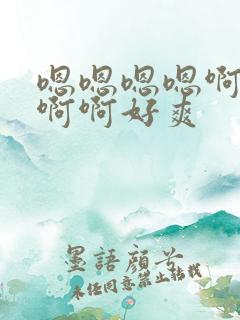 嗯嗯嗯嗯啊
啊啊好爽
墨語顔兮
未经同意禁止转载